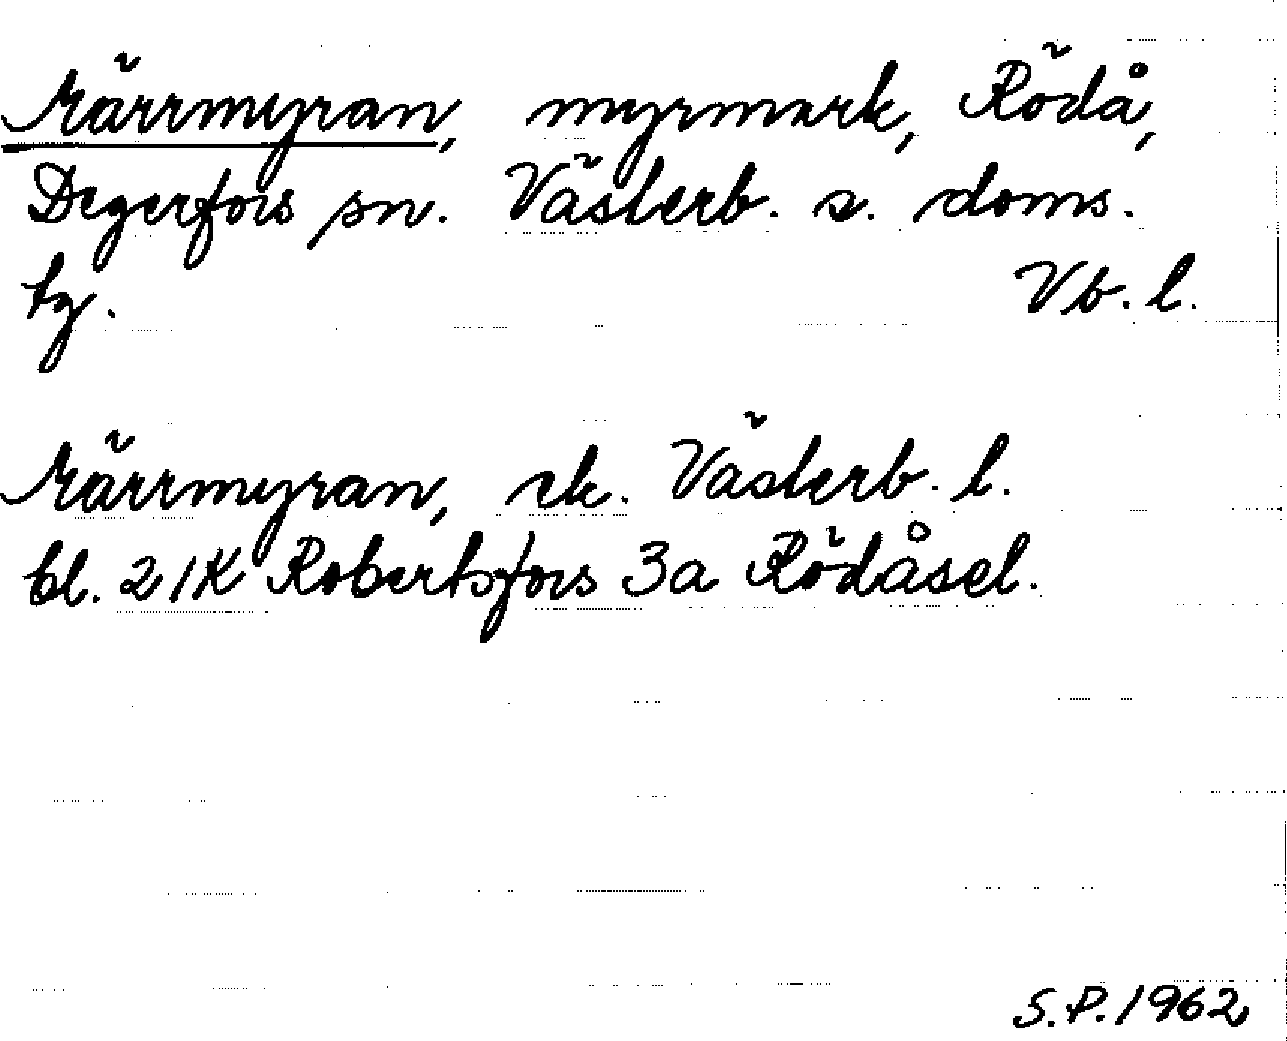 Kärrmyran, myrmark, Rödå,
Degerfors sn. Västerb. s. doms.
tg. Vb. l.
Kärrmyran, ek. Västerb. l.
bl. 21K Robertsfors 3a Rödåsel.
S.P. 1962